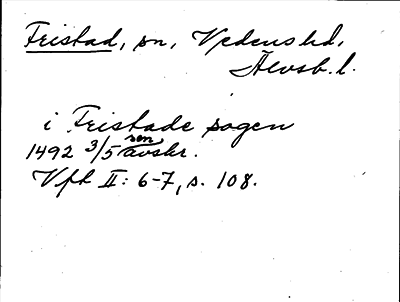 Fristad, sn, Vedens hd,
Älvsb. l.
i Fristade sogen
1492 3/5 sen avskr.
Vft II: 6-7, s. 108.